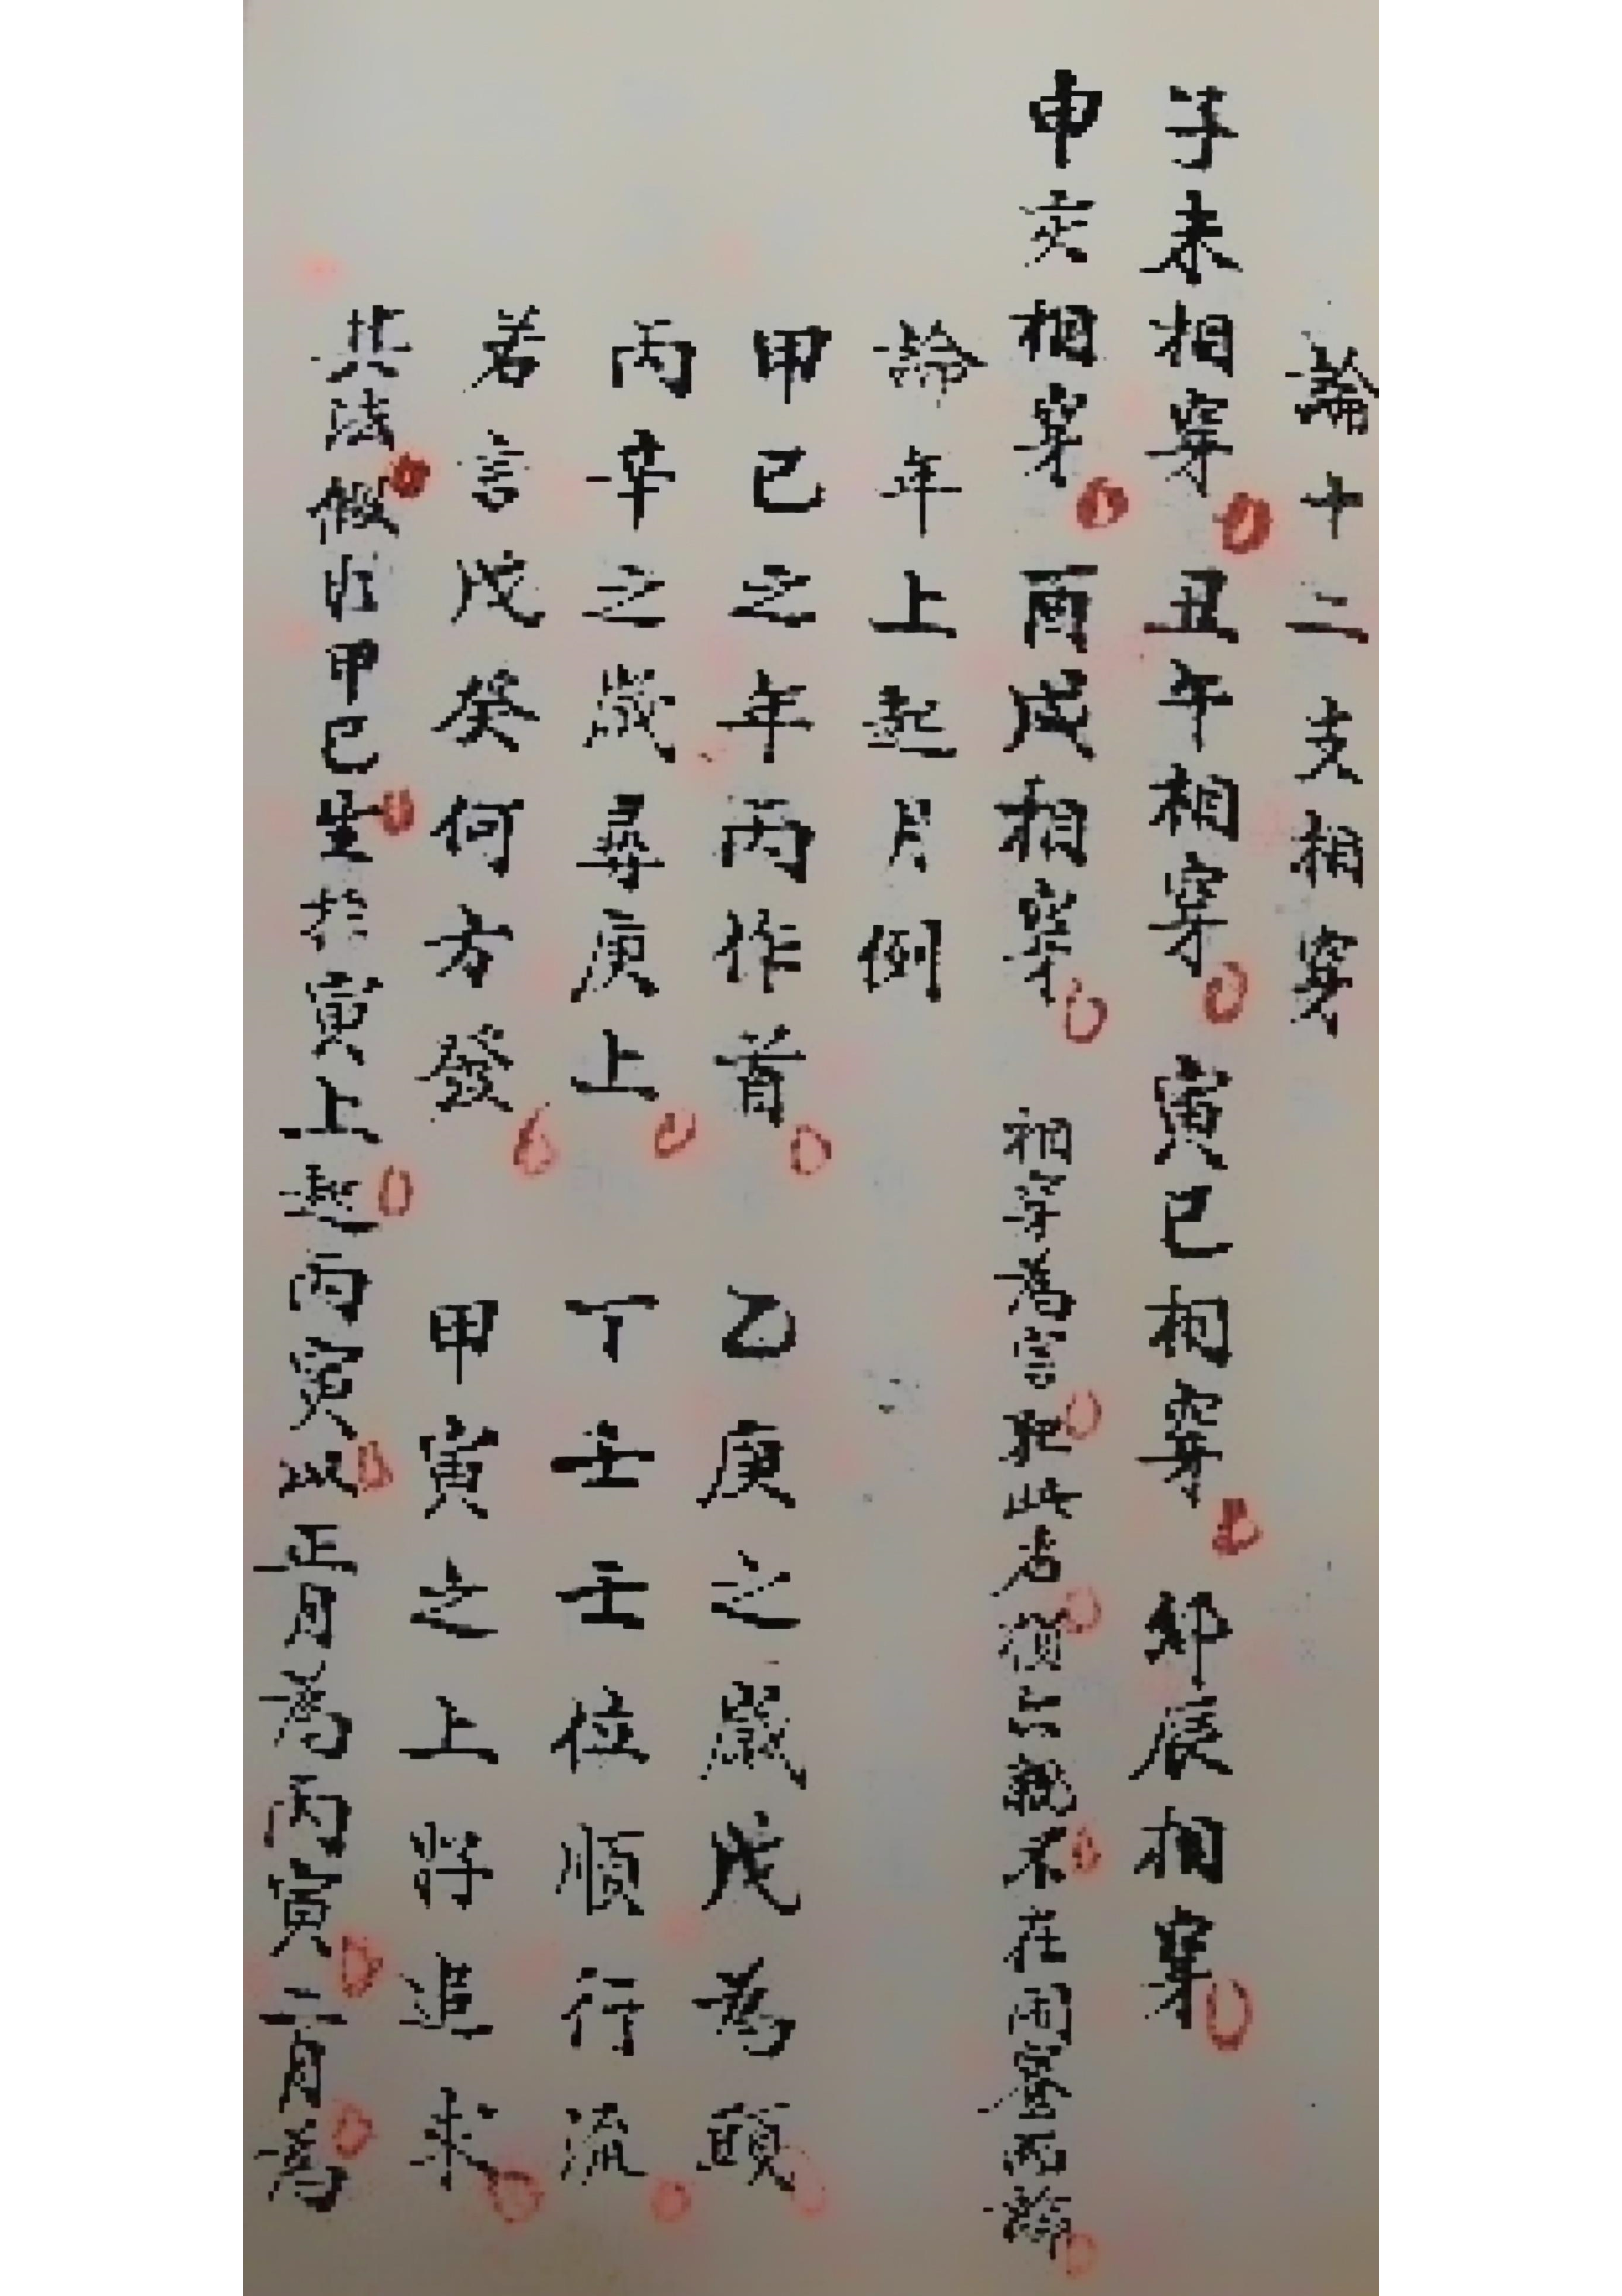 論十二支相穿
子未相穿 丑午相穿 寅巳相穿 卯辰相穿
申亥相穿 酉戌相穿 相穿為害犯此者損六親不在內宮而論
論年上起月例
甲己之年丙作首 乙庚之歲戊為頭
丙辛之歲尋庚上 丁壬壬位順行流
若言戊癸何方發 甲寅之上將追求
其法假如甲己生於寅上起丙寅以正月為丙寅二月為